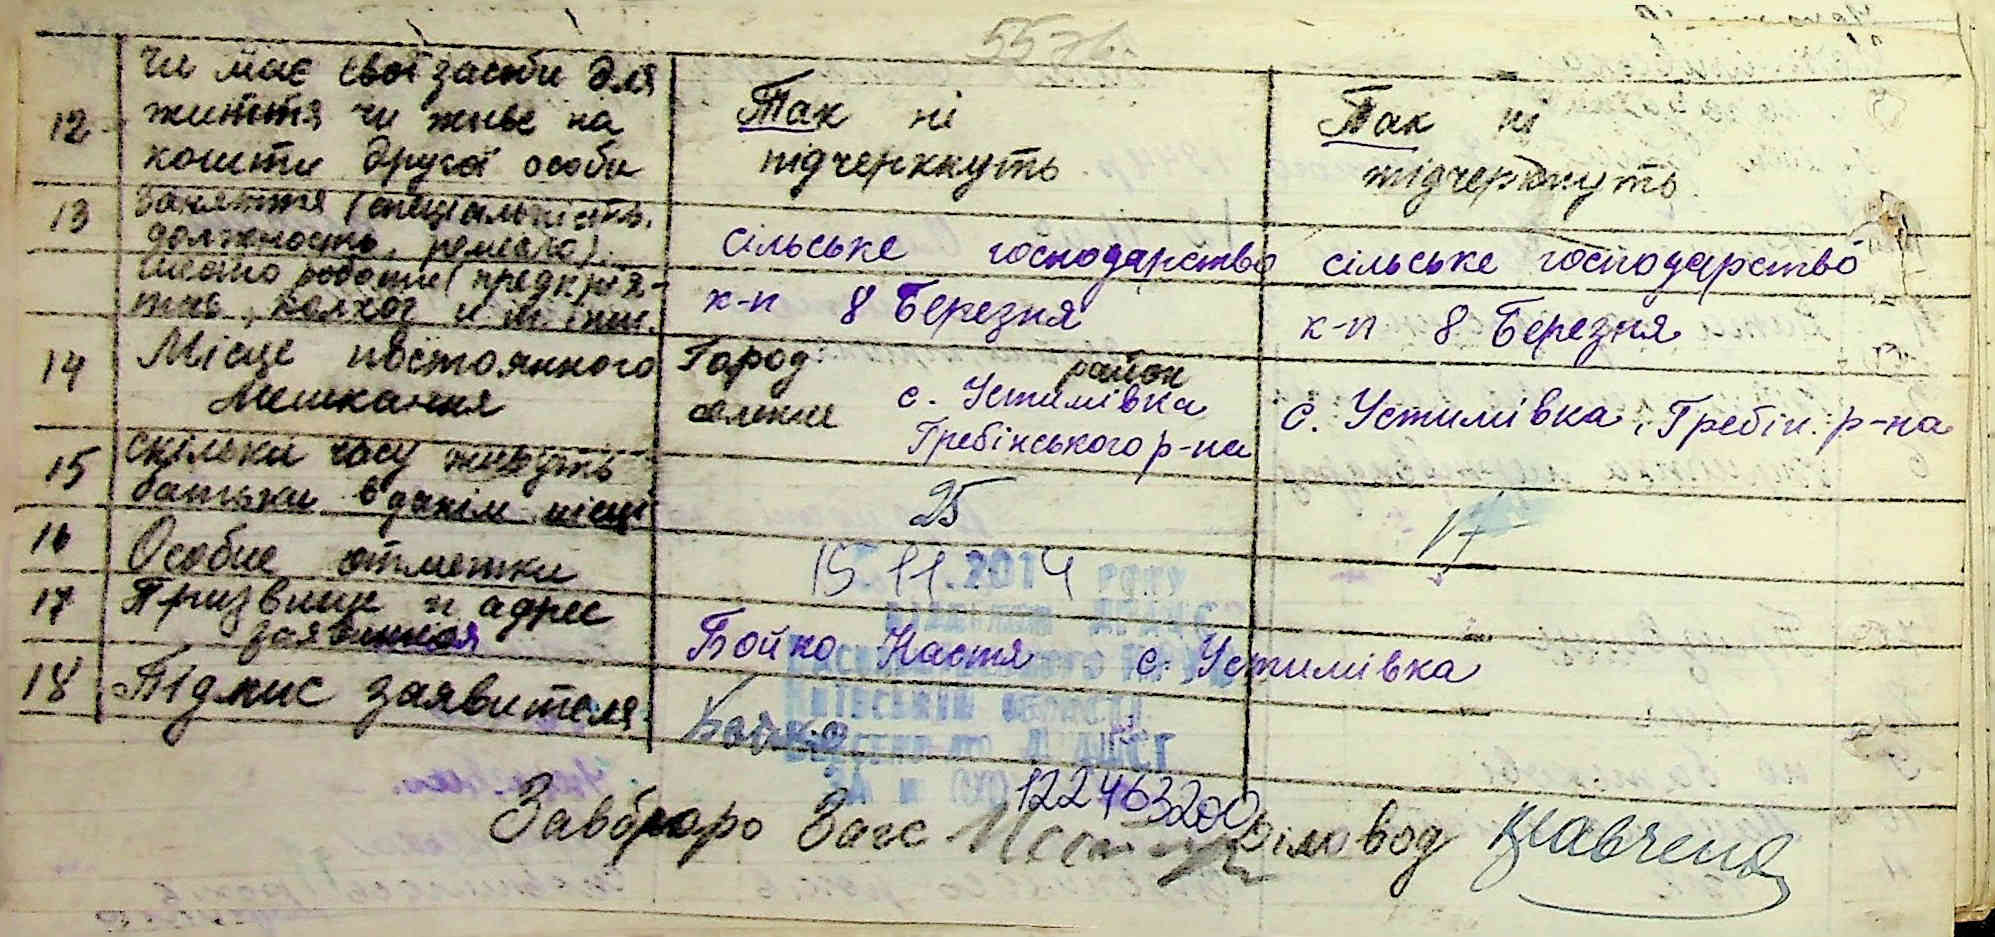 55 зв.
12 Чи має свої засоби для
життя чи живе на
кошти другої особи
Так ні
підчеркнуть
Так ні
підчеркнуть
13 Заняття (специальність,
должность, ремесло).
сільське господарство
сільське господарство
место роботи (предприя-
тие, колхоз и т. інш.
к-п 8 Березня
к-п 8 Березня
14 Місце постоянного
мешкання
Город: район
селение с. Устимівка
Гребінського р-на
с. Устимівка, Гребін. р-на
15 скільки часу живуть
батьки в даній місці
25
17
16 Особие отметки
15.11.2014 року
17 Призвище и адрес
заявителя
Бойко Настя с. Устимівка
18 Підпис заявителя
Бойко
Київській області
ДРАЦСГ
ЗА №
1224463200
Завбюро Загс
діловод Кравченя